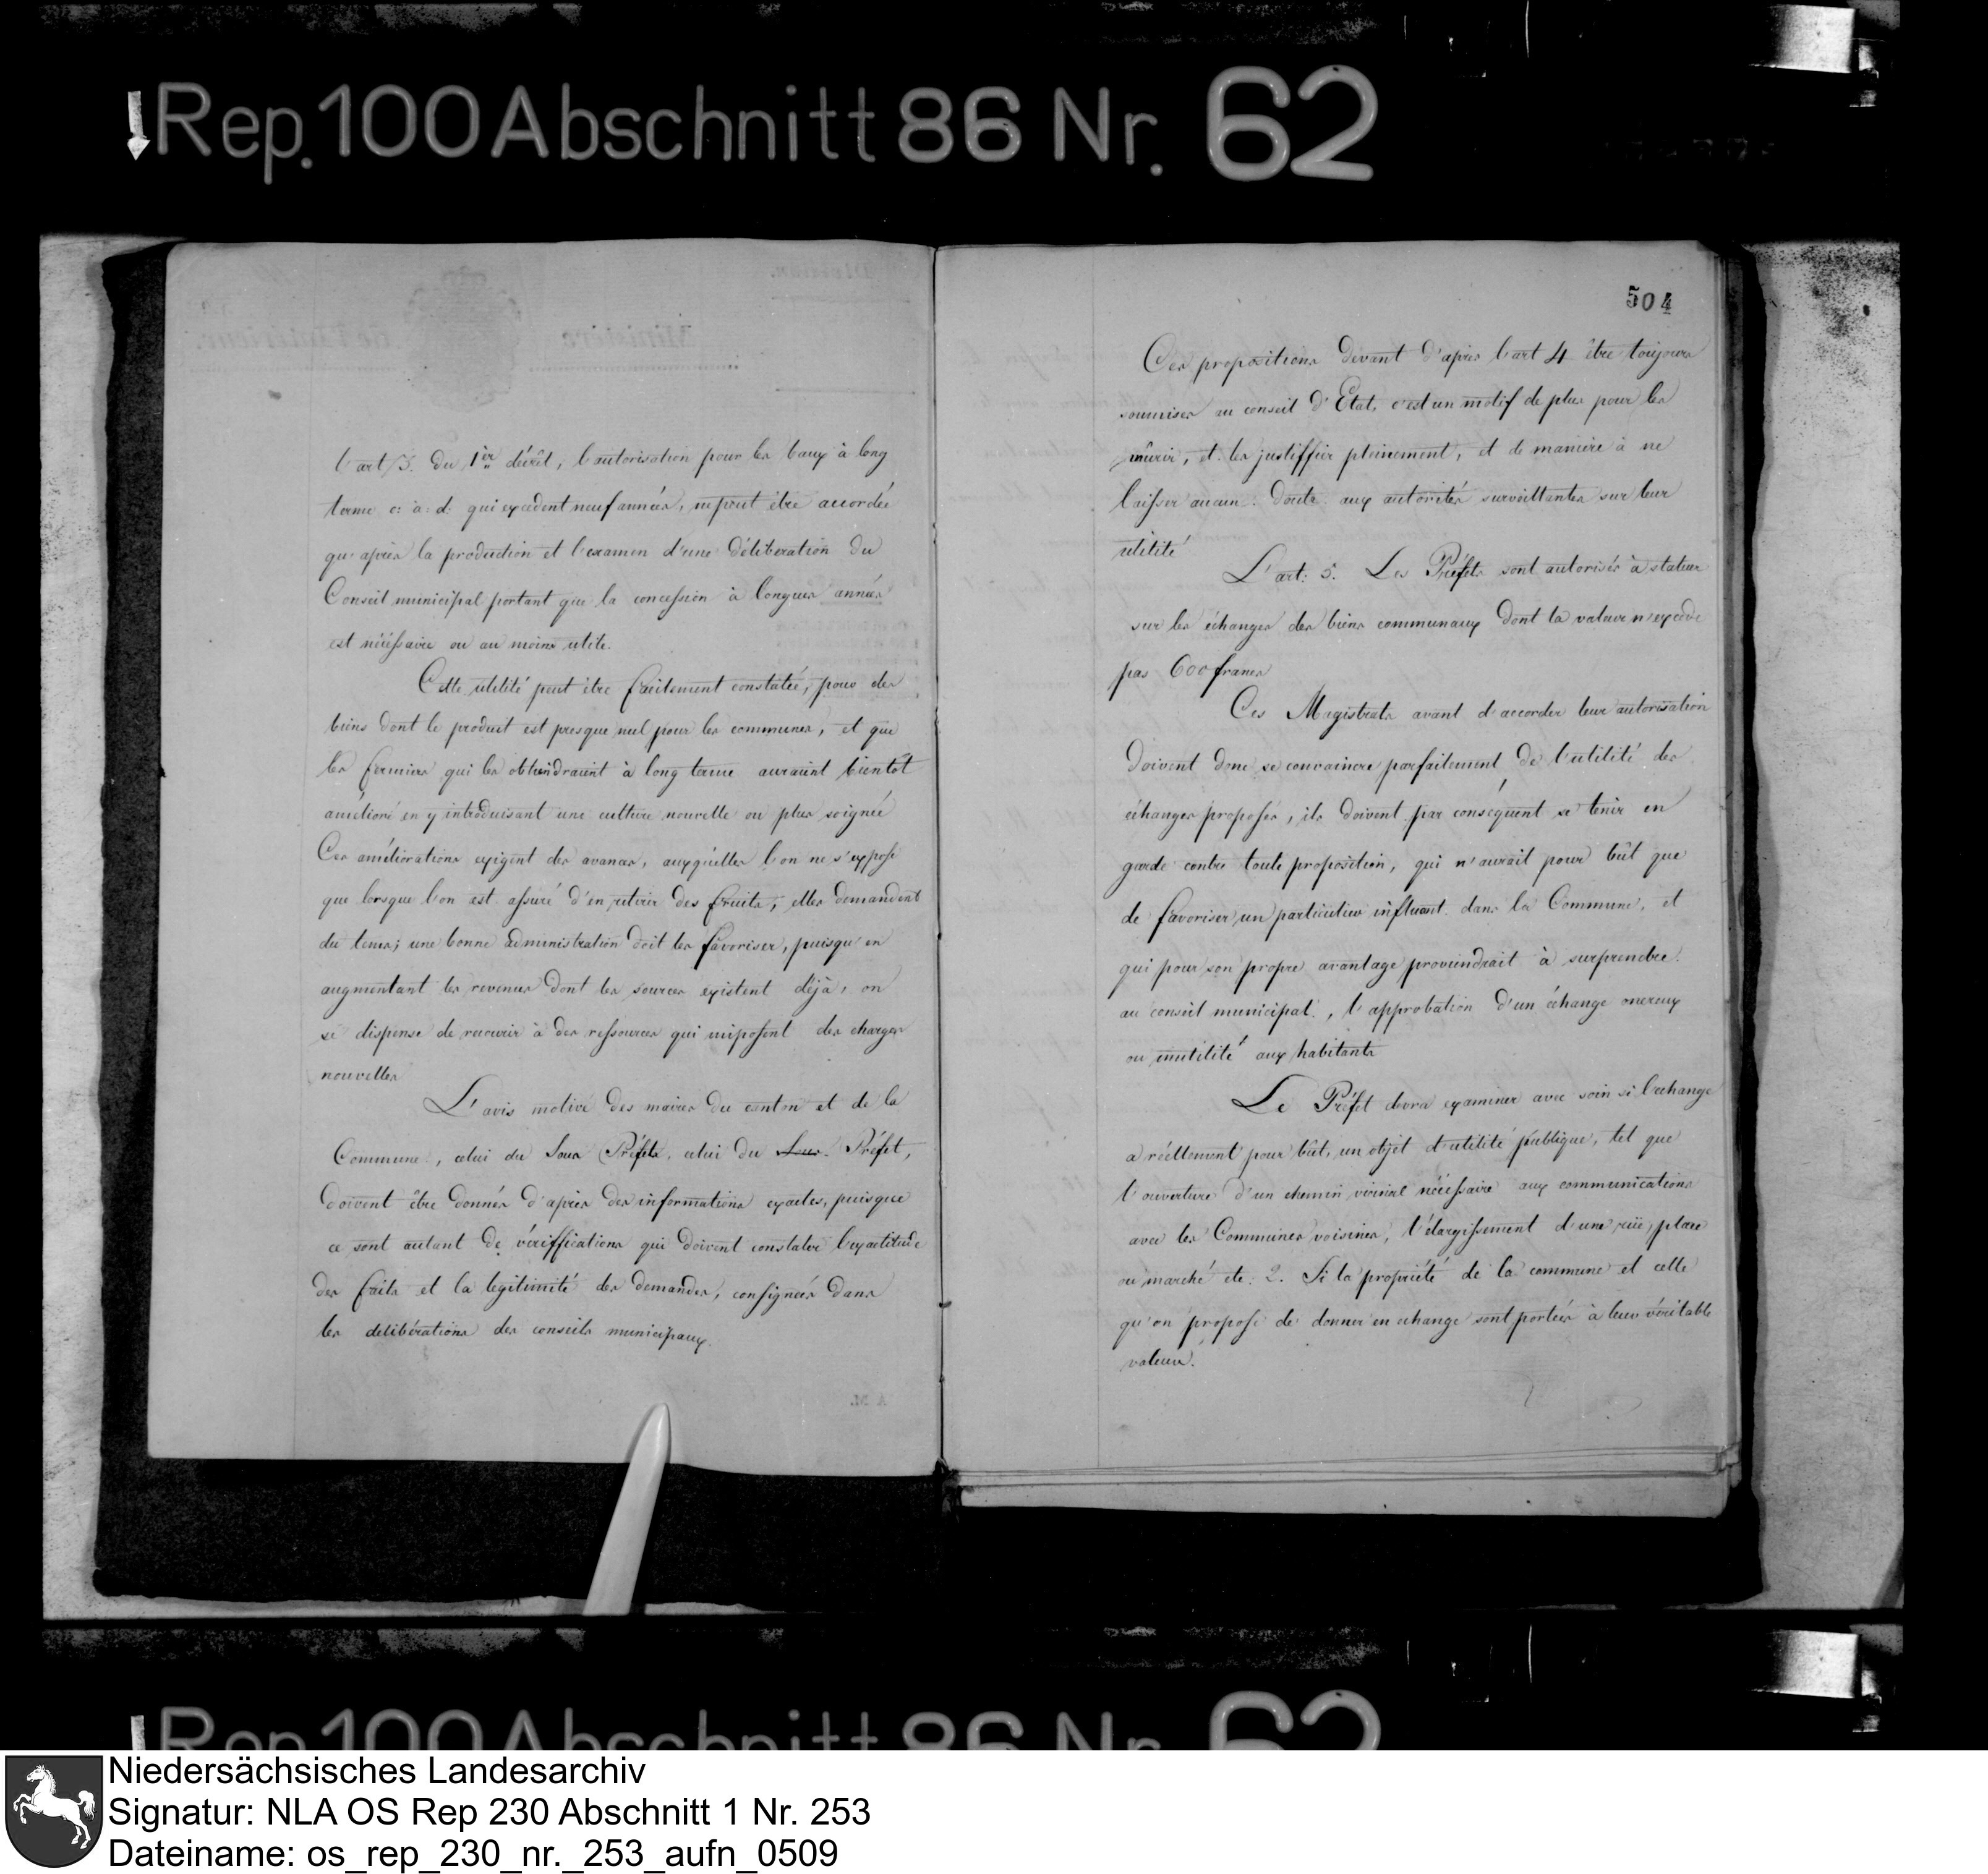 Rep. 100 Abschnitt 86 Nr. 62
l'art 3. du 1ier décrêt, l'autorisation pour les baux à long
terme c: à: d: qui excedent neuf années, ne peut être accordée
qu'après la production et l'examen d'une délibération du
Conseil municipal portant que la concession à longues années
est nécéssaire ou au moins utile.
Cette utilité peut être facilement constatée, pour des
biens dont le produit est presque nul pour les communes, et que
les fermiers qui les obtiendraient à long terme auraient bientôt
amélioré en y introduisant une culture nouvelle ou plus soignée
Ces améliorations exigent des avances, auxquelles l'on ne s'expose
que lorsque l'on est assuré d'en retirer des fruits; elles demandent
du tems; une bonne administration doit les favoriser, puisqu'en
augmentant les revenus dont les sources existent déjà, on
se dispense de recourir à des ressources qui imposent des charges
nouvelles
L'avis motivé des maires du canton et de la
Commune, celui du Sous Préfets, celui du Sous Préfet,
doivent être donnés d'après des informations exactes, puisque
ce sont autant de vériffications qui doivent constater l'exactitude
des faits et la legitimité des demandes, consignées dans
les delibérations des conseils municipaux.
504
Ces propositions devant d'après l'art 4 être toujours
soumises au conseil d'Etat, c'est un motif de plus pour les
mûrir, et les justiffier pleinement, et de manière à ne
laisser aucun doute aux autorités surveillantes sur leur
utilité
L'art: 5. Les Préfets sont autorisés à statuer
sur les échanges des biens communaux dont la valeur n'excède
pas 600 francs
Ces Magistrats avant d'accorder leur autorisation
doivent donc se convaincre parfaitement de l'utilité des
échanges proposés, ils doivent par conséquent se tenir en
garde contre toute proposition, qui n'aurait pour bût que
de favoriser un particulier influent dans la Commune, et
qui pour son propre avantage proviendrait à surprendre
au conseil municipal, l'approbation d'un échange onereux
ou inutilité aux habitants
Le Préfet devra examiner avec soin si l'echange
a réellement pour bût, un objet d'utilité publique, tel que
l'ouverture d'un chemin vicinal nécéssaire aux communications
avec les Communes voisines, l'élargissement d'une rüe, place
ou marché etc: 2. Si la propriété de la commune et celle
qu'on propose de donner en echange sont portées à leur véritable
valeur.
Rep. 100 Abschnitt 86 Nr. 62
Niedersächsisches Landesarchiv
Signatur: NLA OS Rep 230 Abschnitt 1 Nr. 253
Dateiname: os_rep_230_nr._253_aufn_0509